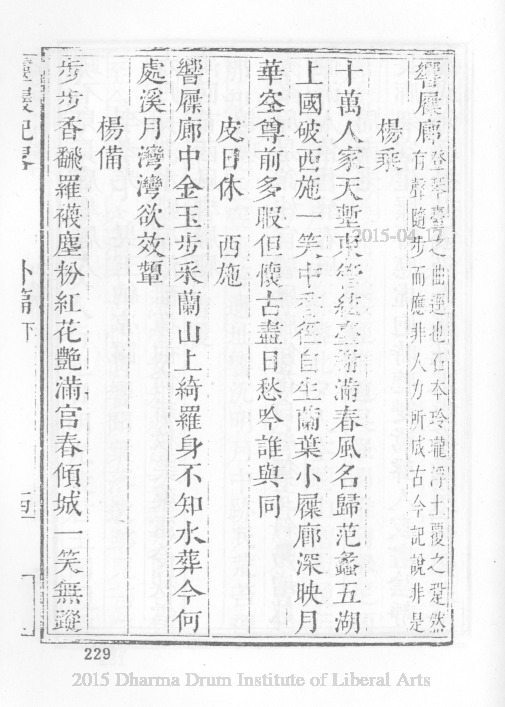 響屧廊登琴臺之曲逕也石本玲瓏浮土覆之鞏然
有聲隨步而應非人力所成古今記說非是
楊乘
十萬人家天塹東管絃臺榭滿春風名歸范蠡五湖
上國破西施一笑中香徑自生蘭葉小屧廊深映月
華空尊前多暇但懷古盡日愁吟誰與同
皮日休 西施
響屧廊中金玉步釆蘭山上綺羅身不知水葬今何
處溪月灣灣欲效顰
楊備
步步香飜羅襪塵粉紅花艷滿宮春傾城一笑無蹤
外篇下
229
2015-04-17
2015 Dharma Drum Institute of Liberal Arts